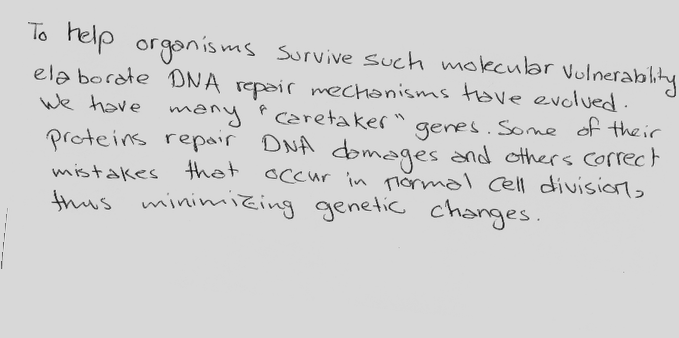 To help organisms survive such molecular vulnerability
elaborate DNA repair mechanisms have evolved.
We have many "caretaker" genes. Some of their
proteins repair DNA damages and others correct
mistakes that occur in normal cell division,
thus minimizing genetic changes.